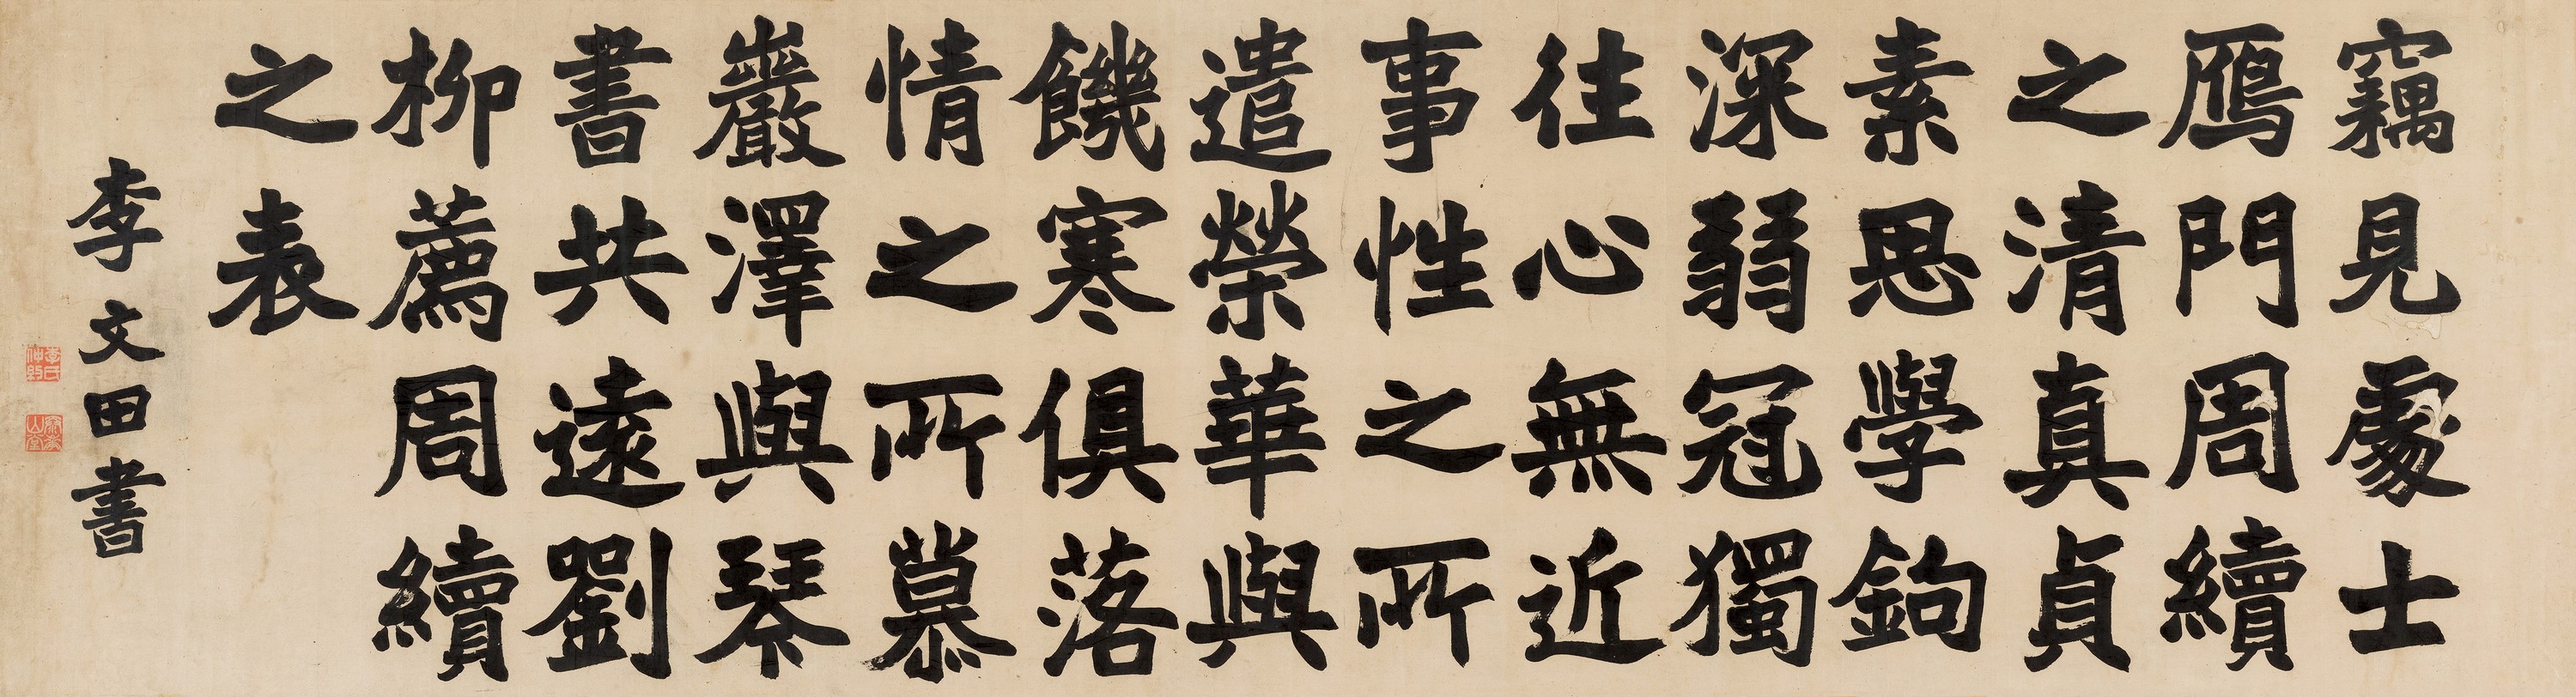 竊見處士
鴈門周續
之清真貞
素思學鉤
深弱冠獨
往心無近
事性之所
遣榮華與
饑寒俱落
情之所慕
巖澤與琴
書共遠劉
柳薦周續
之表
李文田書
李氏仲約